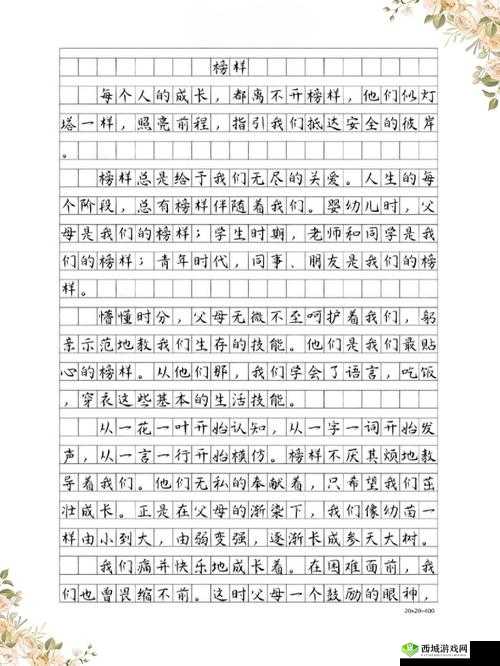 榜样
每个人的成长，都离不开榜样，他们似灯
塔一样，照亮前程，指引我们抵达安全的彼岸
。
榜样总是给于我们无尽的关爱。人生的每
个阶段，总有榜样伴随着我们。婴幼儿时，父
母是我们的榜样；学生时期，老师和同学是我
们的榜样；青年时代，同事、朋友是我们的榜
样。
懵懂时分，父母无微不至呵护着我们，躬
亲示范地教我们生存的技能。他们是我们最贴
心的榜样。从他们那，我们学会了语言，吃饭
，穿衣这些基本的生活技能。
从一花一叶开始认知，从一字一词开始发
声，从一言一行开始模仿。榜样不厌其烦地教
导着我们。他们无私的奉献着，只希望我们茁
壮成长。正是在父母的渐染下，我们像幼苗一
样由小到大，由弱变强，逐渐长成参天大树。
我们痛并快乐地成长着。在困难面前，我
们也曾畏缩不前。这时父母一个鼓励的眼神，
20×20=400
西城游戏网